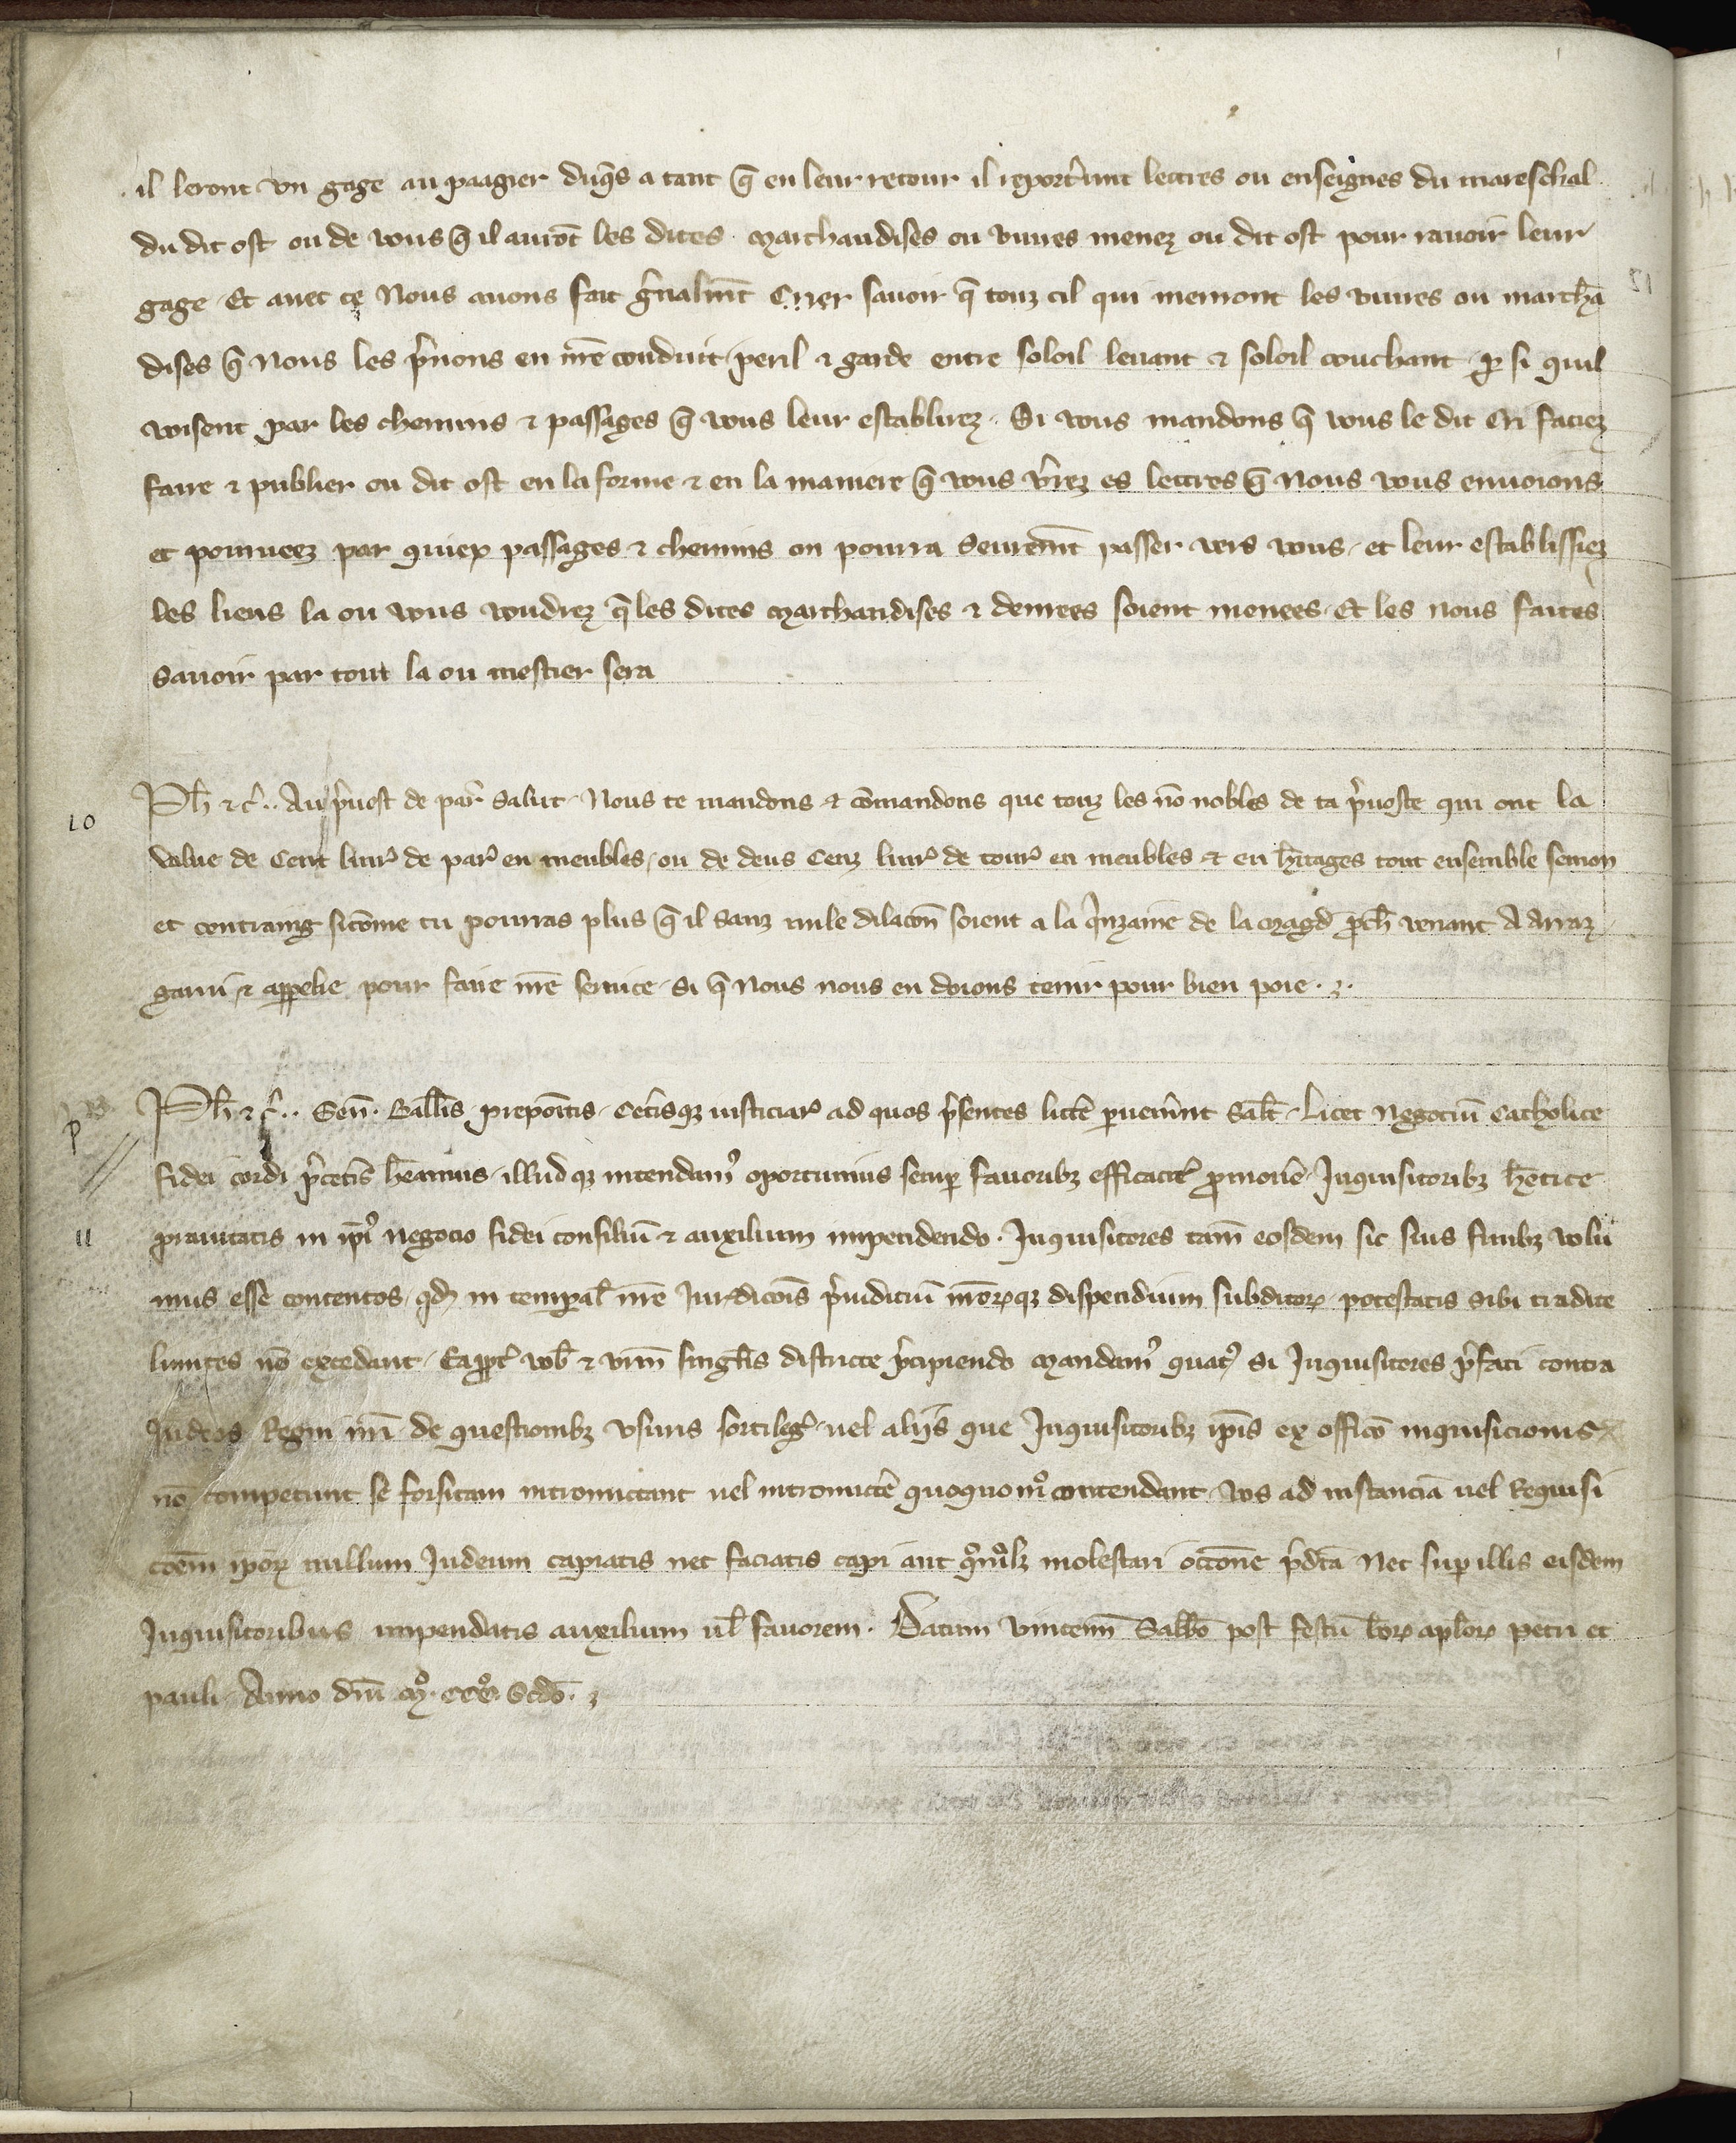 il leront vn gage au paagier duq̄s a tant q̄ en leur retour il report̾unt lettres ou enseignes du mareschal
du dit ost ou de vous q̄ il aurōt les dites marchandises ou viures menez ou dit ost pour rauoir leur
gage Et auec ce Nous auons fait g̾nalmēt Crier sauoir q̄ touz cil qui menront les viures ou marchā
dises q̄ Nous les p̾nons en nr̄e conduit peril ⁊ garde entre soloil leuant ⁊ soloil couchant ꝑ si quil
voisent par les chemins ⁊ passages q̄ vous leur establirez Si vous mandons q̄ vous le dit Cri faciez
faire ⁊ publier ou dit ost en la forme ⁊ en la maniere q̄ vous v̾rez es lettres q̄ Nous vous enuoions
et pourueez par quiex passages ⁊ chemins on pourra seuremēt passer vers vous et leur establissiez
les liens la ou vous voudrez q̄ les dites marchandises ⁊ denrees soient menees Et les nous faites
sauoir par tout la ou mestier sera
10
Ph̄ ⁊ c̾ .. Au p̾uost de par̾ salut Nous te mandons ⁊ cōmandons que touz les nō nobles de ta p̾uoste qui ont la
value de Cent liur̾ de par̾ en meubles ou de deus Cenz liur̾ de tour̾ en meubles ⁊ en h̄itages tout ensemble semon
et contraing sicōme tu pourras plus q̄ il sanz nule dilacōn soient a la q̾nzaine de la magd̄ ꝓch̄ venant A Arraz
garni ⁊ appelie pour faire nr̄e seruice si q̄ Nous nous en doions tenir pour bien poie
p
11
Ph̄ ⁊ c̾ .. Sen̄ Balliīs prepoītis Cet̾isqꝫ iusticiar̾ ad quos p̾sentes litt̄e ꝑuen̾int Sal̄t Licet Negotiū Catholice
fidei cordi p̾cet̾is h̄eamus illud qꝫ intendam᾽ oportunius semꝑ fauoribꝫ efficacit̾ ꝓmoue̅ Inquisitoribꝫ h̄etice
prauitatis in ip̄i᾽ negocio fidei consiliū ⁊ auxilium impendendo Inquisitores tam̄ eosdem sic suis finibꝫ volu
mus esse contentos qd̾ in temꝑal̾ nr̄e Iur̾dicōis p̾iudiciū nr̄oꝝqꝫ dispendium subditoꝝ potestatis sibi tradite
limites nō excedant Eapp̾t̾ vob̄ ⁊ vr̄m singl̄is districte p̾cipiendo mandam᾽ quat᾽ si Inquisitores p̾fati contra
Iudeos Regni nr̄i de questionibꝫ vsuris sortileg̾ vel aliis que Inquisitoribꝫ ip̄is ex officō inquisicionis
nō competunt se forsitam intromittant uel intromitt̄e quoquom̊ contendant vos ad instanciā uel Requisi
cōem ipōꝝ nullum Iudeum capiatis nec faciatis capi aut q̊m̊lꝫ molestari occōne p̾dcā Nec suꝑ illis eisdem
Inquisitoribus impendatis auxilium ul̄ fauorem Datum vincenn̄ Sabbō post festū b̄oꝝ apl̄oꝝ petri et
pauli Anno dn̄i m̊ ccc̊ Scdō